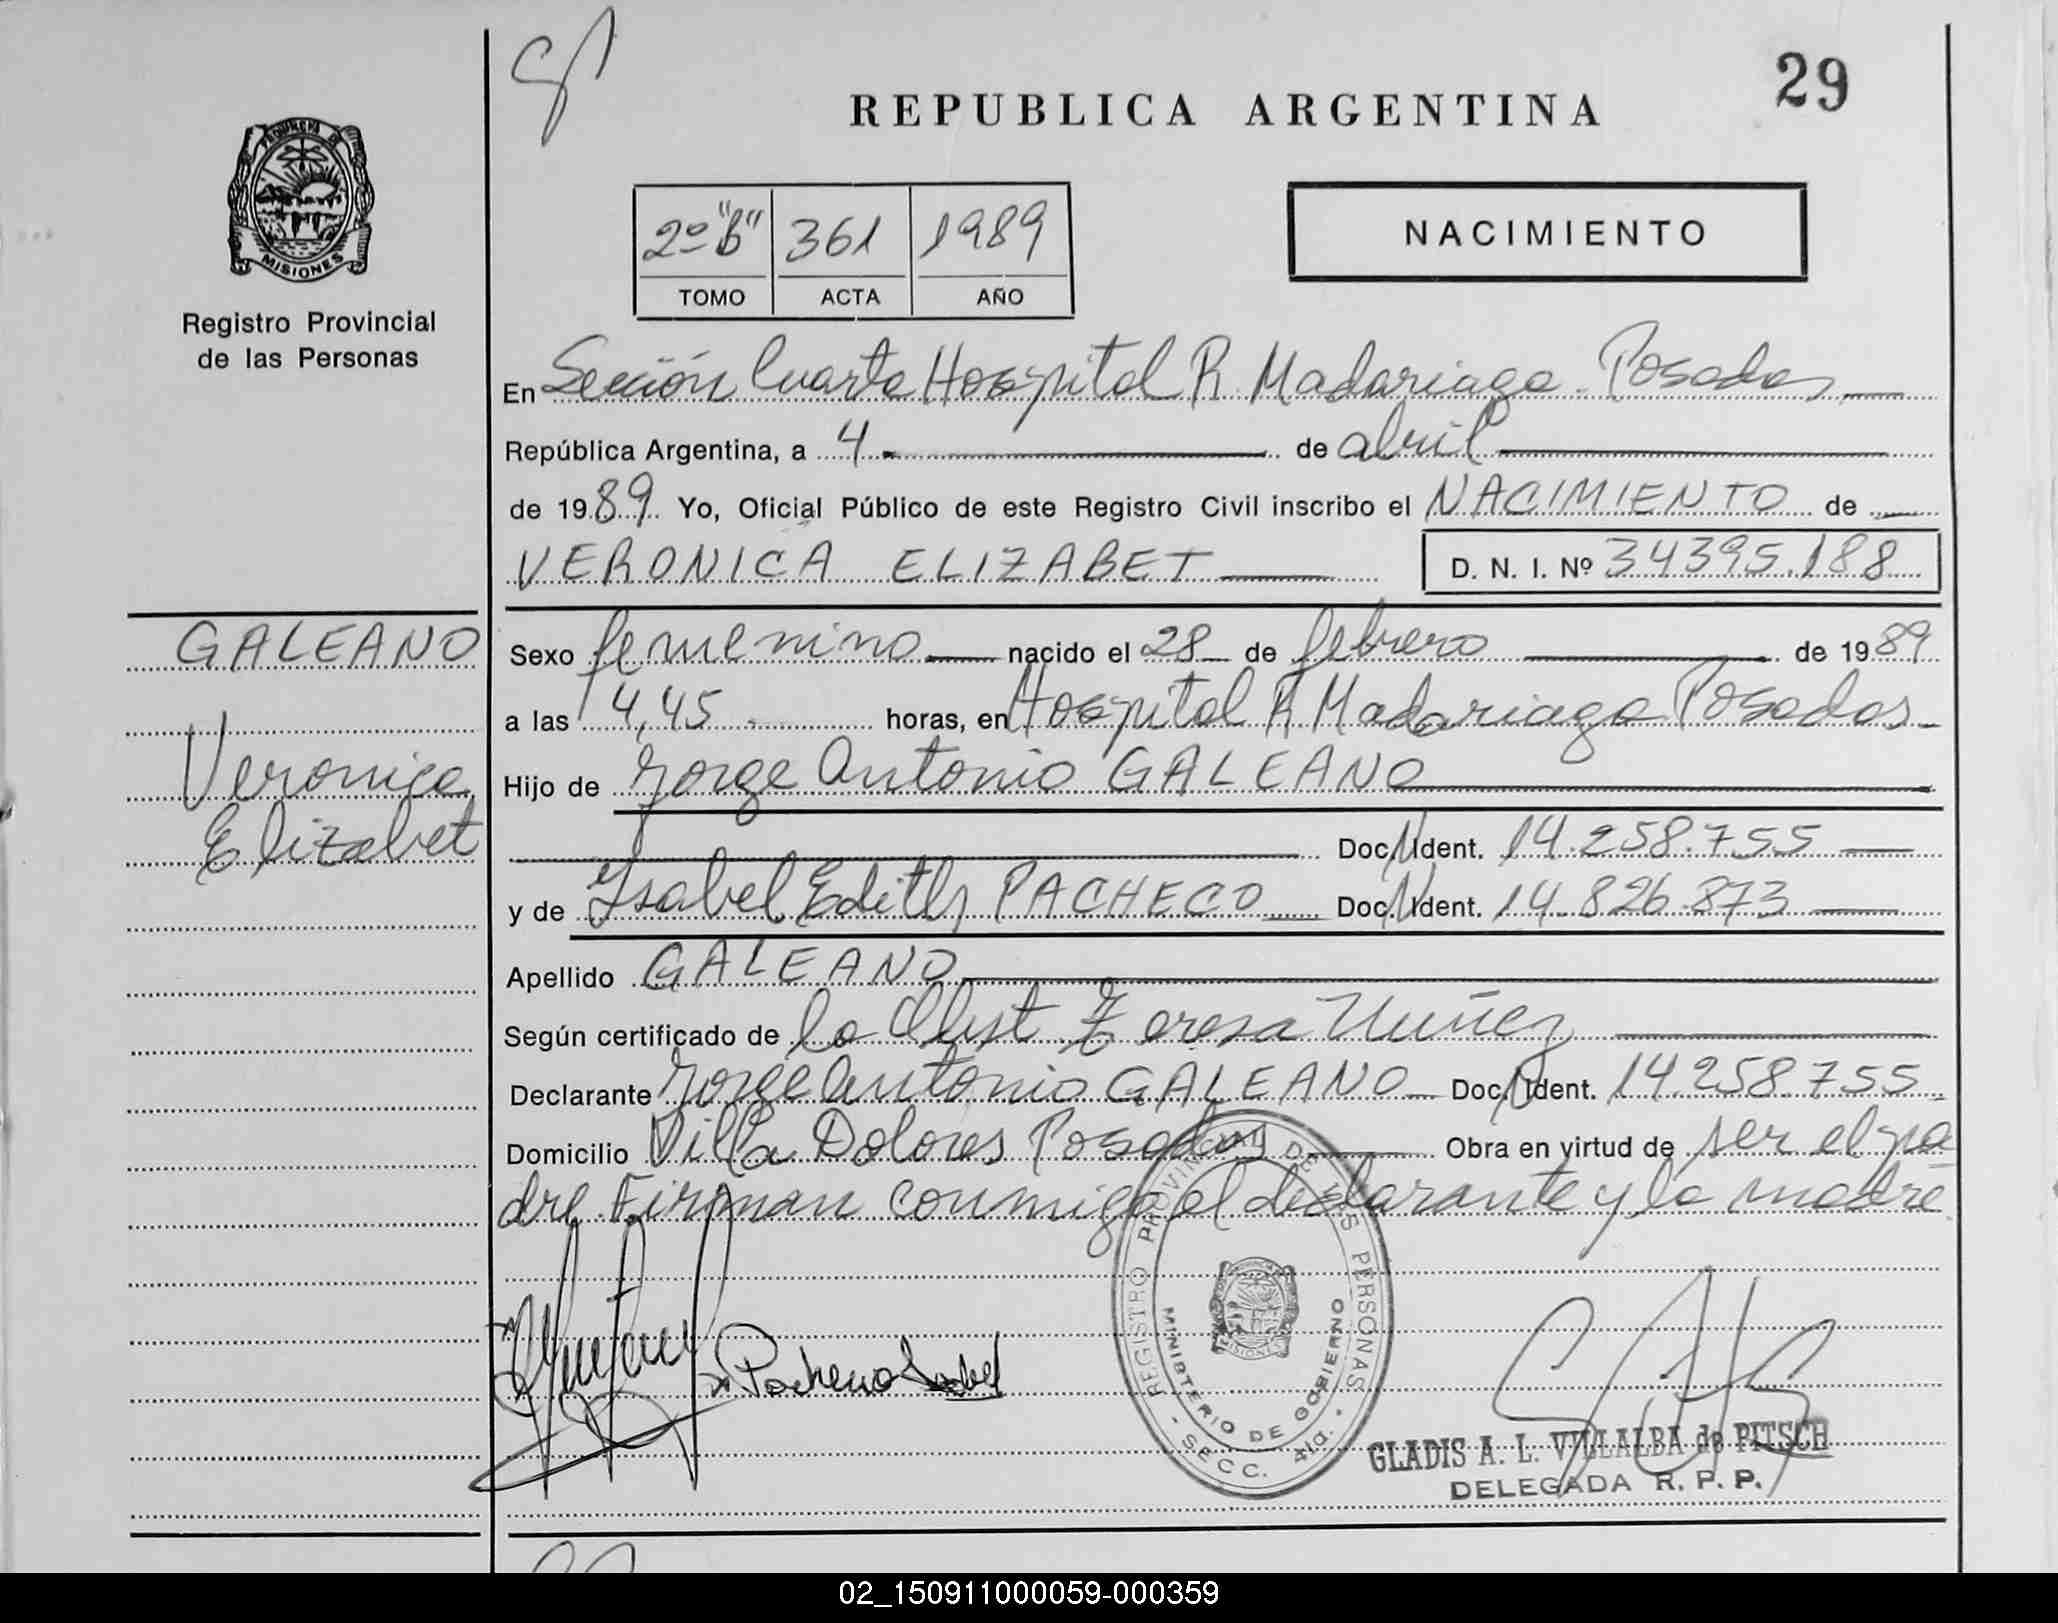 29
REPUBLICA ARGENTINA
PROVINCIA DE
MISIONES
Registro Provincial
de las Personas
2º "B" 361 1989
TOMO ACTA AÑO
NACIMIENTO
En Sección Cuarta Hospital R. Madariaga. Posadas
República Argentina, a 4 de abril
de 1989 Yo, Oficial Público de este Registro Civil inscribo el NACIMIENTO de
VERONICA ELIZABET D. N. I. Nº 34395.188
GALEANO
Veronica
Elizabet
Sexo femenino nacido el 28 de febrero de 1989
a las 14,45 horas, en Hospital R Madariaga Posadas
Hijo de Jorge Antonio GALEANO
Doc. Ident. 14.258.755
y de Ysabel Edith PACHECO Doc. Ident. 14.826.873
Apellido GALEANO
Según certificado de la Obst Teresa Nuñez
Declarante Jorge Antonio GALEANO Doc. Ident. 14.258.755
Domicilio Villa Dolores Posadas Obra en virtud de ser el pa
dre Firman conmigo el declarante y la madre
Pacheco Isabel
REGISTRO PROVINCIAL DE LAS PERSONAS
MINISTERIO DE GOBIERNO
MISIONES
- SECC. 4ta. -
GLADIS A. L. VILLALBA de PITSCH
DELEGADA R. P. P.
02_150911000059-000359